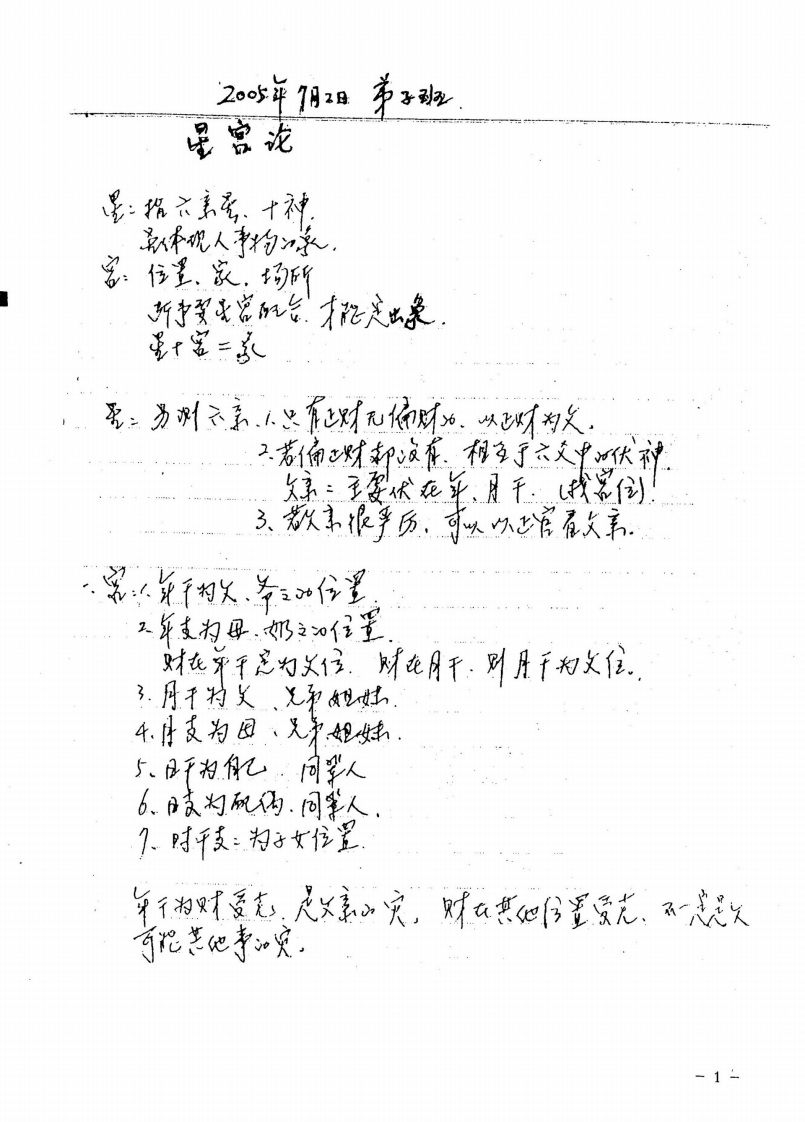 2005年7月2日 弟子班
星宫论
星：指六亲星、十神.
具体现人事物的象.
宫：位置、家、场所
断事要星宫配合.才能定出象.
星+宫=象
星：另测六亲.1.只有正财无偏财的.以正财为父.
2.若偏正财都没有.相当于六爻中的伏神.
父亲：主要伏在年、月干.(找宫位)
3、若父亲很严厉.可以以正官看父亲.
一.宫：1.年干为父、爷之的位置.
2.年支为母、奶之的位置.
财在年干定为父位.财在月干.则月干为父位.
3.月干为父、兄弟姐妹.
4.月支为母、兄弟姐妹.
5、日干为自己.同辈人
6、日支为配偶.同辈人.
7、时干支：为子女位置.
年干为财受克.是父亲的灾，财在其他位置受克、不一定是父
可能其他事的灾.
- 1 -